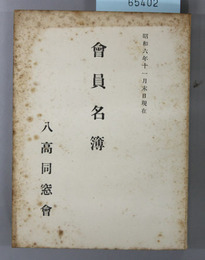 65402
昭和六年十一月末日現在
會員名簿
八高同窓會